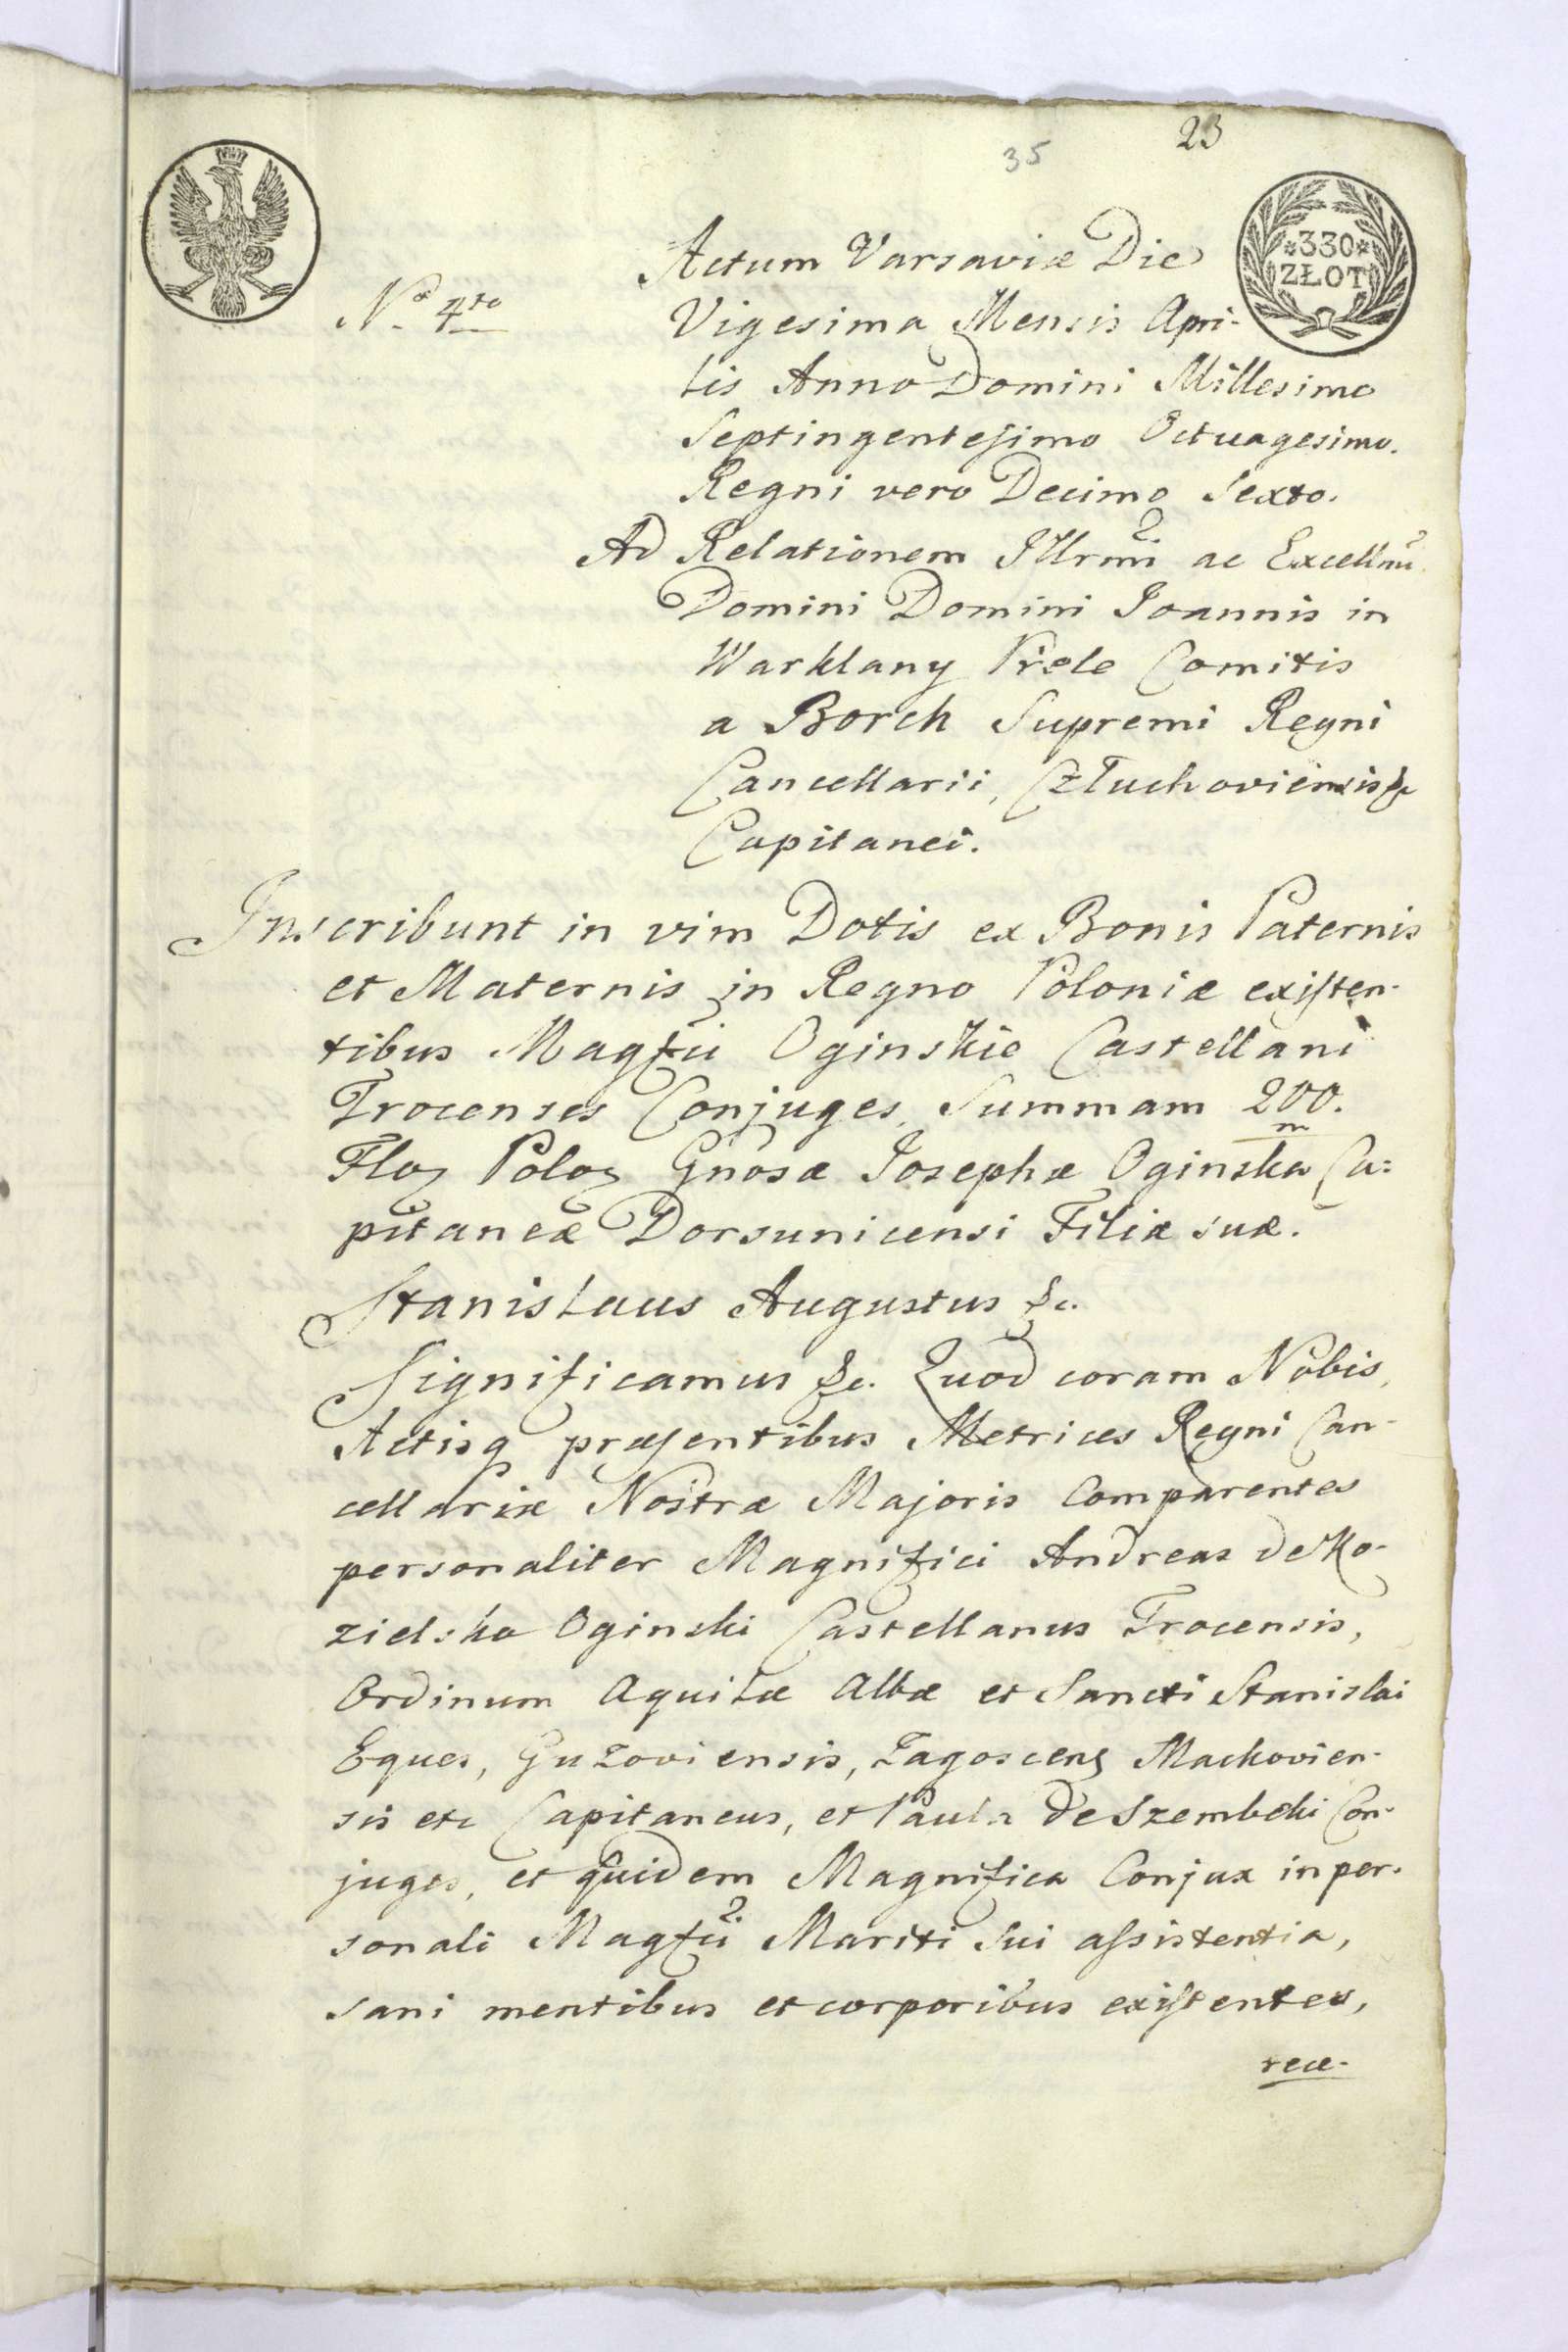 35
23
*330*
ZŁOT
Nº 4to
Actum Varsaviæ Die
Vigesima Mensis Apri-
lis Anno Domini Millesimo
Septingentesimo Octuagesimo.
Regni vero Decimo Sexto.
Ad Relationem Illrmi ac Excellmi
Domini Domini Joannis in
Warklany Prele Comitis
a Borch Supremi Regni
Cancellarii, Człuchoviensis &
Capitanei.
Inscribunt in vim Dotis ex Bonis Paternis
et Maternis in Regno Poloniæ existen-
tibus Magfci Oginskie Castellani
Trocenses Conjuges, Summam 200.
m
Flor Polor Gnosæ Josephæ Oginska Ca=
pitaneæ Dorsunicensi Filiæ suæ.
Stanislaus Augustus &c.
Significamus &c. Quod coram Nobis,
Actisq præsentibus Metrices Regni Can-
cellariæ Nostræ Majoris Comparentes
personaliter Magnifici Andreas de Ko-
zielsko Oginski Castellanus Trocensis,
Ordinum Aquilæ Albæ et Sancti Stanislai
Eques, Guzoviensis, Jagoscens Mackovien-
sis etc Capitaneus, et Paula de Szembeki Con-
juges, et quidem Magnifica Conjux in per-
sonali Magfci Mariti Sui assistentia,
sani mentibus et corporibus existentes,
rece-